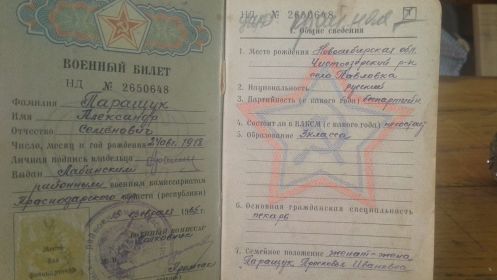 ВОЕННЫЙ БИЛЕТ
НД № 2650648
Фамилия Паращук
Имя Александр
Отчество Семенович
Число, месяц и год рождения 1918
Личная подпись владельца
Выдан Лабинским
районным военным комиссариатом
Краснодарского (республики)
ВОЕННЫЙ КОМИССАР
Место
для
НД № 2650648
1
I. Общие сведения
1. Место рождения Новосибирская обл.
Чистоозерский р-н
село Павловка
2. Национальность русский
3. Партийность (с какого года) беспартийн
4. Состоит ли в ВЛКСМ (с какого года)
5. Образование 3 класса
6. Основная гражданская специальность
пекарь
7. Семейное положение женат - жена
Паращук Ивановна